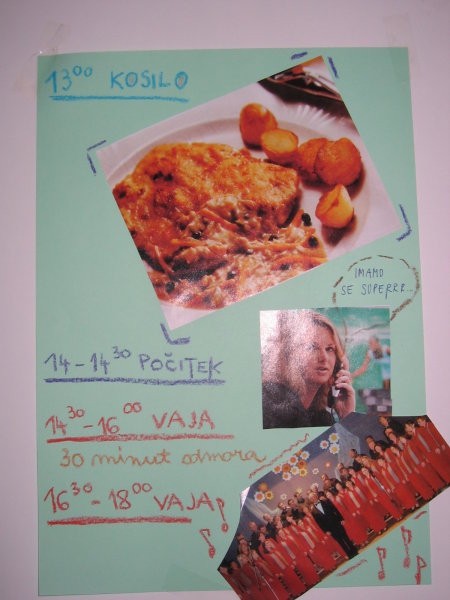 13⁰⁰ KOSILO
IMAMO
SE SUPERRR...
14-14³⁰ POČITEK
14³⁰-16⁰⁰ VAJA
30 minut odmora
16³⁰-18⁰⁰ VAJA